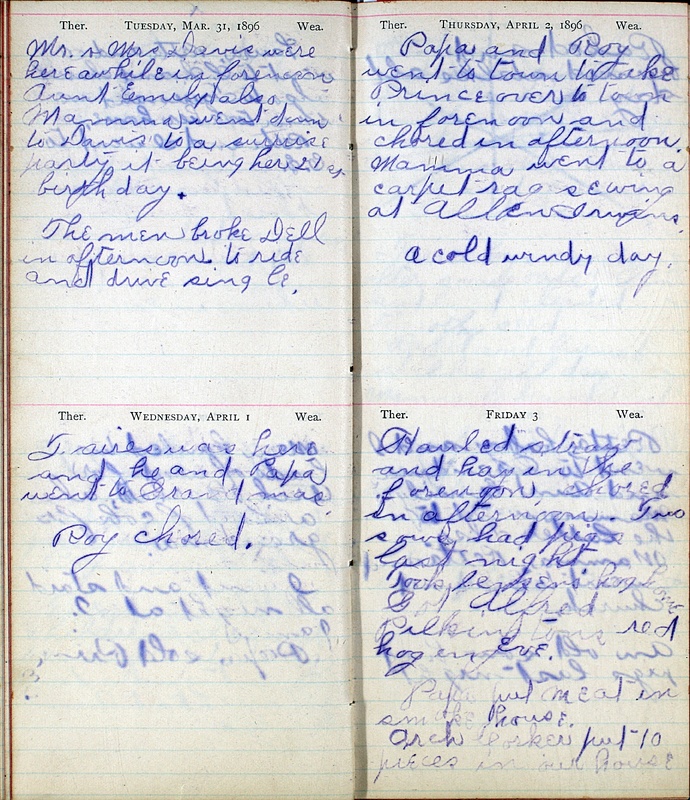 Ther. TUESDAY, MAR. 31, 1896 Wea.
Mr. & Mrs Davis were
here awhile in forenoon
Aunt Emily also.
Mamma went down
to Davis to a surprise
party it being her
birthday.
The men broke Dell
in afternoon to ride
and drive single.
Ther. WEDNESDAY, APRIL 1 Wea.
was here
and he and Papa
went to Grandmas
Roy chored.
Ther. THURSDAY, APRIL 2, 1896 Wea.
Papa and Roy
went to town to take
Prince over to town
in forenoon and
chored in afternoon.
Mamma went to a
carpet rag sewing
at Allen Irwins.
a cold windy day.
Ther. FRIDAY 3 Wea.
Hauled straw
and hay in the
forenoon chored
in afternoon. Two
sows had pigs
last night
Took hog
Got Alfred
Pilkingtons red
hog in eve.
Papa put meat in
smoke house.
Orch Yorker put 10
pieces in our house